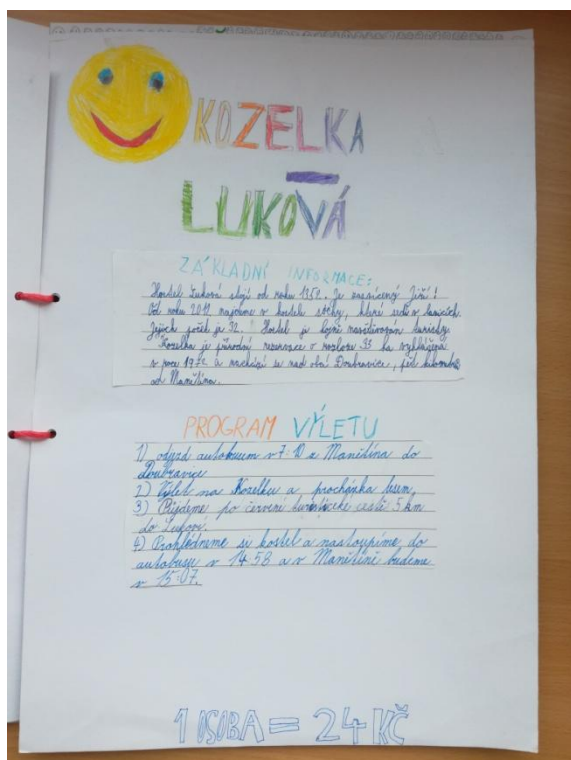 KOZELKA
–
LUKOVÁ
ZÁKLADNÍ INFORMACE:
Kostel Luková stojí od roku 1352. Je zasvěcený Jiří!
Od roku 2012 najdeme v kostele sochy, které sedí v lavicích.
Jejich počet je 32. Kostel je hojně navštěvován turisty.
Kozelka je přírodní rezervace o rozloze 33 ha vyhlášena
v roce 1972 a nachází se nad obcí Doubravice, pět kilometrů
od Manětína.
PROGRAM VÝLETU
1) odjezd autobusem v 7:10 z Manětína do
Doubravice
2) Výlet na Kozelku a procházka lesem.
3) Půjdeme po červené turistické cestě 5 km
do Lukové.
4) Prohlédneme si kostel a nastoupíme do
autobusu v 14:53 a v Manětíně budeme
v 15:07.
1 OSOBA = 24 KČ